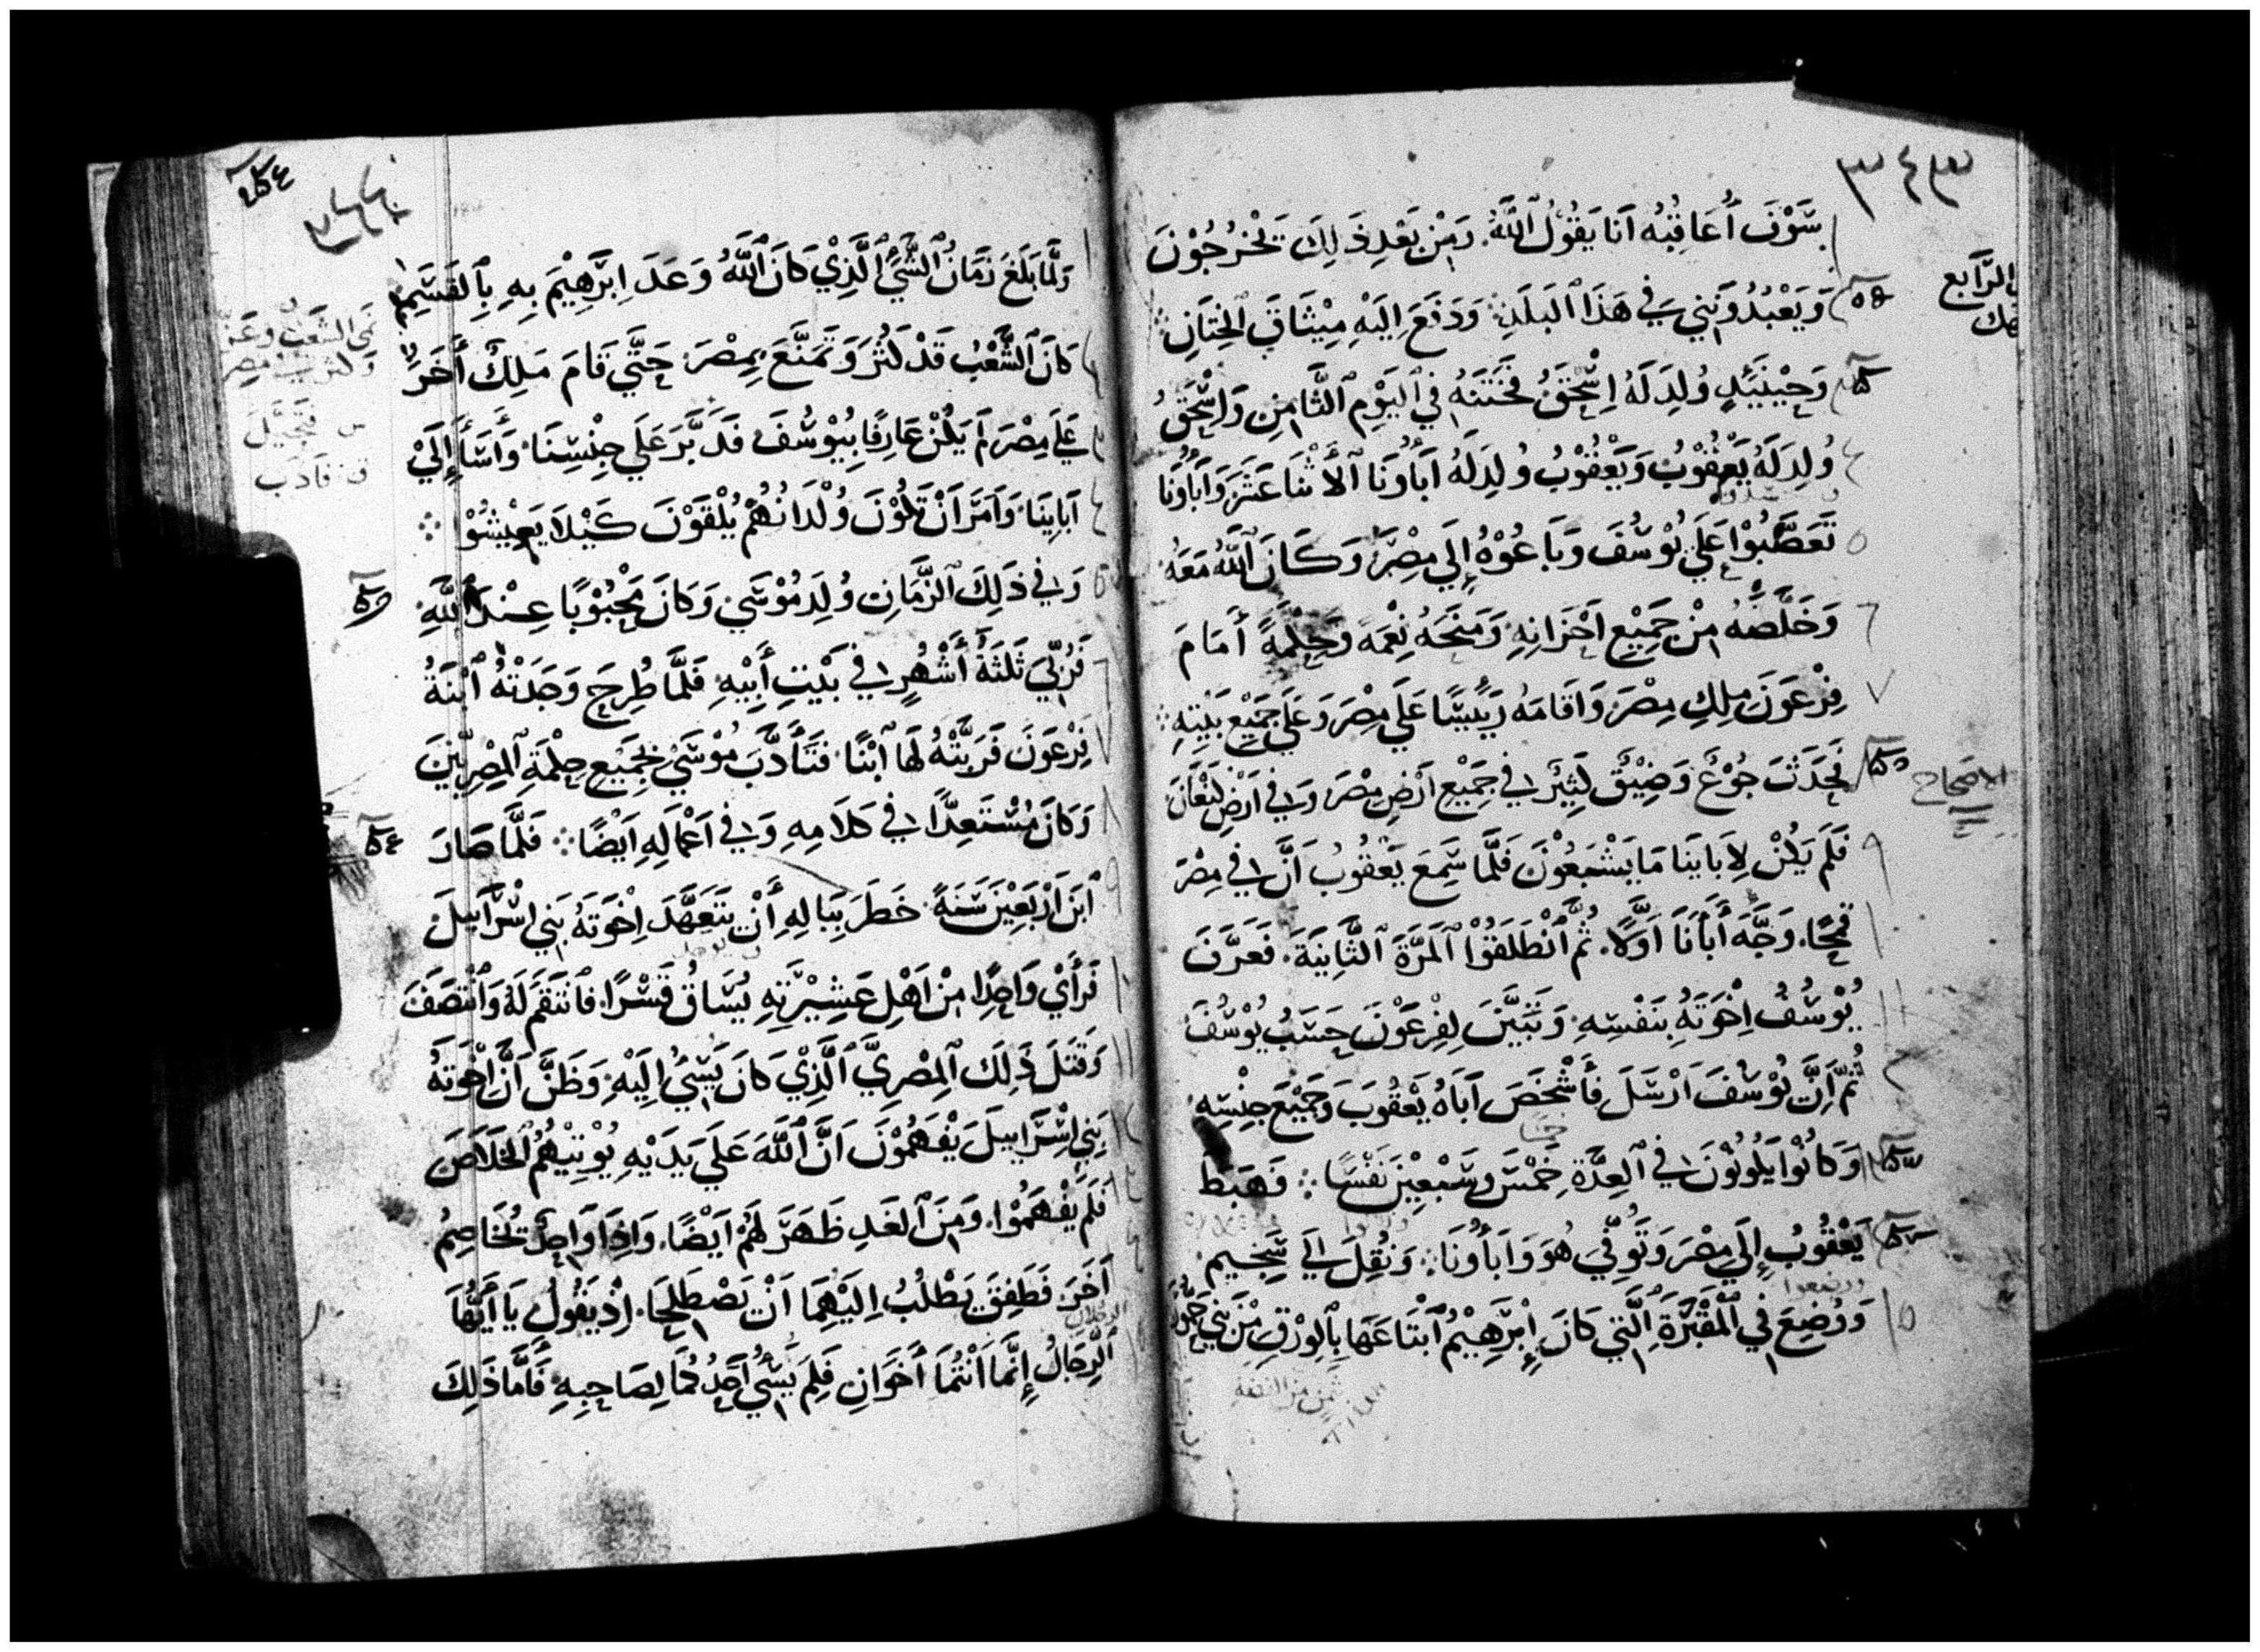 ٣٤٣
سَوْفَ أُعَاقِبُهُ اَنَا يَقُولُ ٱللَّهُ. وَمِنْ بَعْدِ ذَلِكَ يَخْرُجُوْنَ
وَيَعْبُدُونَنِي فِي هَذَا ٱلبَلَدِ وَدَفَعَ اِلَيْهِ مِيْثَاقَ ٱلخِتَانِ
وَحِيْنَئِدٍ وُلِدَ لَهُ اِسْحَقُ فَخَتَنَهُ فِي ٱليَوْمِ ٱلثَّامِنِ وَاِسْحَقُ
وُلِدَ لَهُ يَعْقُوْبُ وَيَعْقُوْبُ وُلِدَ لَهُ اَبَاؤُنَا ٱلاَثْنَا عَشَرَ وَاَبَاؤُنَا
تَعَصَّبُوْا عَلَي يُوْسُفَ وَبَاعُوْهُ إِلَي مِصْرَ وَكَانَ ٱللَّهُ مَعَهُ
وَخَلَّصَهُ مِنْ جَمِيْعِ اَحْزَانِهِ وَمَنَحَهُ نِعْمَةً وَحِكْمَةً أَمَامَ
فِرْعَوْنَ مَلِكِ مِصْرَ وَاَقَامَهُ رَيِّيسًا عَلَي مِصْرَ وَعَلَي جَمِيْعِ بَيْتِهِ
الاصحاح
فَحَدَثَ جُوْعٌ وَضِيْقٌ كَثِيْرٌ فِي جَمِيْعِ اَرْضِ مِصْرَ وَفِي اَرْضِ كَنْعَانَ
فَلَمْ يَكُنْ لِاَبَايِنَا مَا يَشْبَعُوْنَ فَلَمَّا سَمِعَ يَعْقُوْبُ اَنَّ فِي مِصْرَ
قَمْحًا. وَجَّهَ أَبَأَنَا اَوَّلًا. ثُمَّ ٱنْطَلَقُوْا ٱلمَرَّةَ ٱلثَّانِيَةَ. فَعَرَّفَ
يُوْسُفُ اِخْوَتَهُ بِنَفْسِهِ وَتَبَيَّنَ لِفِرْعَوْنَ حَسَبُ يُوْسُفَ
ثُمَّ اِنَّ يُوْسُفَ اَرْسَلَ فَأَشْخَصَ اَبَاهُ يَعْقُوبَ وَجَمِيْعَ جِنْسِهِ
وَكَانُوْا يَكُوْنُوْنَ فِي ٱلعِدَّةِ خَمْسَ وَسَبْعِيْنَ نَفْسًا فَهَبَطَ
يَعْقُوبُ إِلَي مِصْرَ وَتَوَفَّيَ هُوَ وَاَبَأؤُنَا وَنُقِلَ اِلَي شَخِيم
وَوُضِعَ فِي ٱلمَقْبَرَةِ ٱلَّتِي كَانَ إِبْرَهِيْمُ ٱبْتَاعَهَا بِٱلوَرْقِ مِنْ بَنِي
وَلَمَّا بَلَغَ زَمَانُ ٱلشَّيْ ٱلَّذِيْ كَانَ ٱللَّهُ وَعَدَ اِبْرَهِيْمَ بِهِ بِٱلقَسَمِ
كَانَ ٱلشَّعْبُ قَدْ كَثُرَ وَتَمَنَّعَ بِمِصْرَ حَتَّي قَامَ مَلِكٌ أَخَرُ
عَلَي مِصْرَ لَمْ يَكُنْ عَارِفًا بِيُوْسُفَ فَدَبَّرَ عَلَي جِنْسِنَا وَأَسَأَ إِلَيْ
اَبَايِنَا وَاَمَرَ اَنْ تَكُوْنَ وُلْدَانُهُمْ يُلْقَوْنَ كَيْلَا يَعِيْشُوْا
وَفِي ذَلِكَ ٱلزَّمَانِ وُلِدَ مُوْسَي وَكَانَ مَحْبُوْبًا عِنْدَ ٱللَّهِ
فَرُبِّيَ ثَلَثَةَ أَشْهُرٍ فِي بَيْتِ أَبِيْهِ فَلَمَّا طُرِحَ وَجَدَتْهُ ٱبْنَةُ
فِرْعَوْنَ فَرَبَّتْهُ لَهَا ٱبْنًا فَتَأَدَّبَ مُوْسَيْ بِجَمِيْعِ حِكْمَةِ ٱلمِصْرِيِّيْنَ
وَكَانَ مُسْتَعِدًّا فِي كَلَامِهِ وَفِي اَعْمَالِهِ اَيْضًا فَلَمَّا صَارَ
ٱبْنَ اَرْبَعِيْنَ سَنَةً. خَطَرَ بِبَالِهِ أَنْ يَتَعَهَّدَ اِخْوَتَهُ بَنِي اِسْرَايِيلَ
فَرَأَيْ وَاحِدًا مِنْ اَهْلِ عَشِيْرَتِهِ يُسَاقُ قَسْرًا فَاَنْتَقَمَ لَهُ وَٱنْتَصَفَ
وَقَتَلَ ذَلِكَ ٱلمِصْرِيَّ ٱلَّذِيْ كَانَ يُسِيْ اِلَيْهِ وَظَنَّ اَنَّ اِخْوَتَهُ
بَنِي اِسْرَايِيلَ يَفْهَمُوْنَ اَنَّ ٱللَّهَ عَلَي يَدَيْهِ يُوْتِيْهُمُ ٱلخَلَاصَ
فَلَمْ يَفْهَمُوْا. وَمِنَ ٱلغَدِ ظَهَرَ لَهُمْ اَيْضًا. وَاِذَا وَاحِدٌ يُخَاصِمُ
اَخَرَ فَطَفِقَ يَطْلُبُ اِلَيْهِمَا اَنْ يَصْطَلِحَا. اِذْ يَقُولُ يَا أَيُّهَا
ٱلرِّجَالُ إِنَّمَا أَنْتُمَا أَخَوَانِ فَلِمَ يُسِيْ اَحَدُكُمَا لِصَاحِبِهِ فَأَمَّا ذَلِكَ